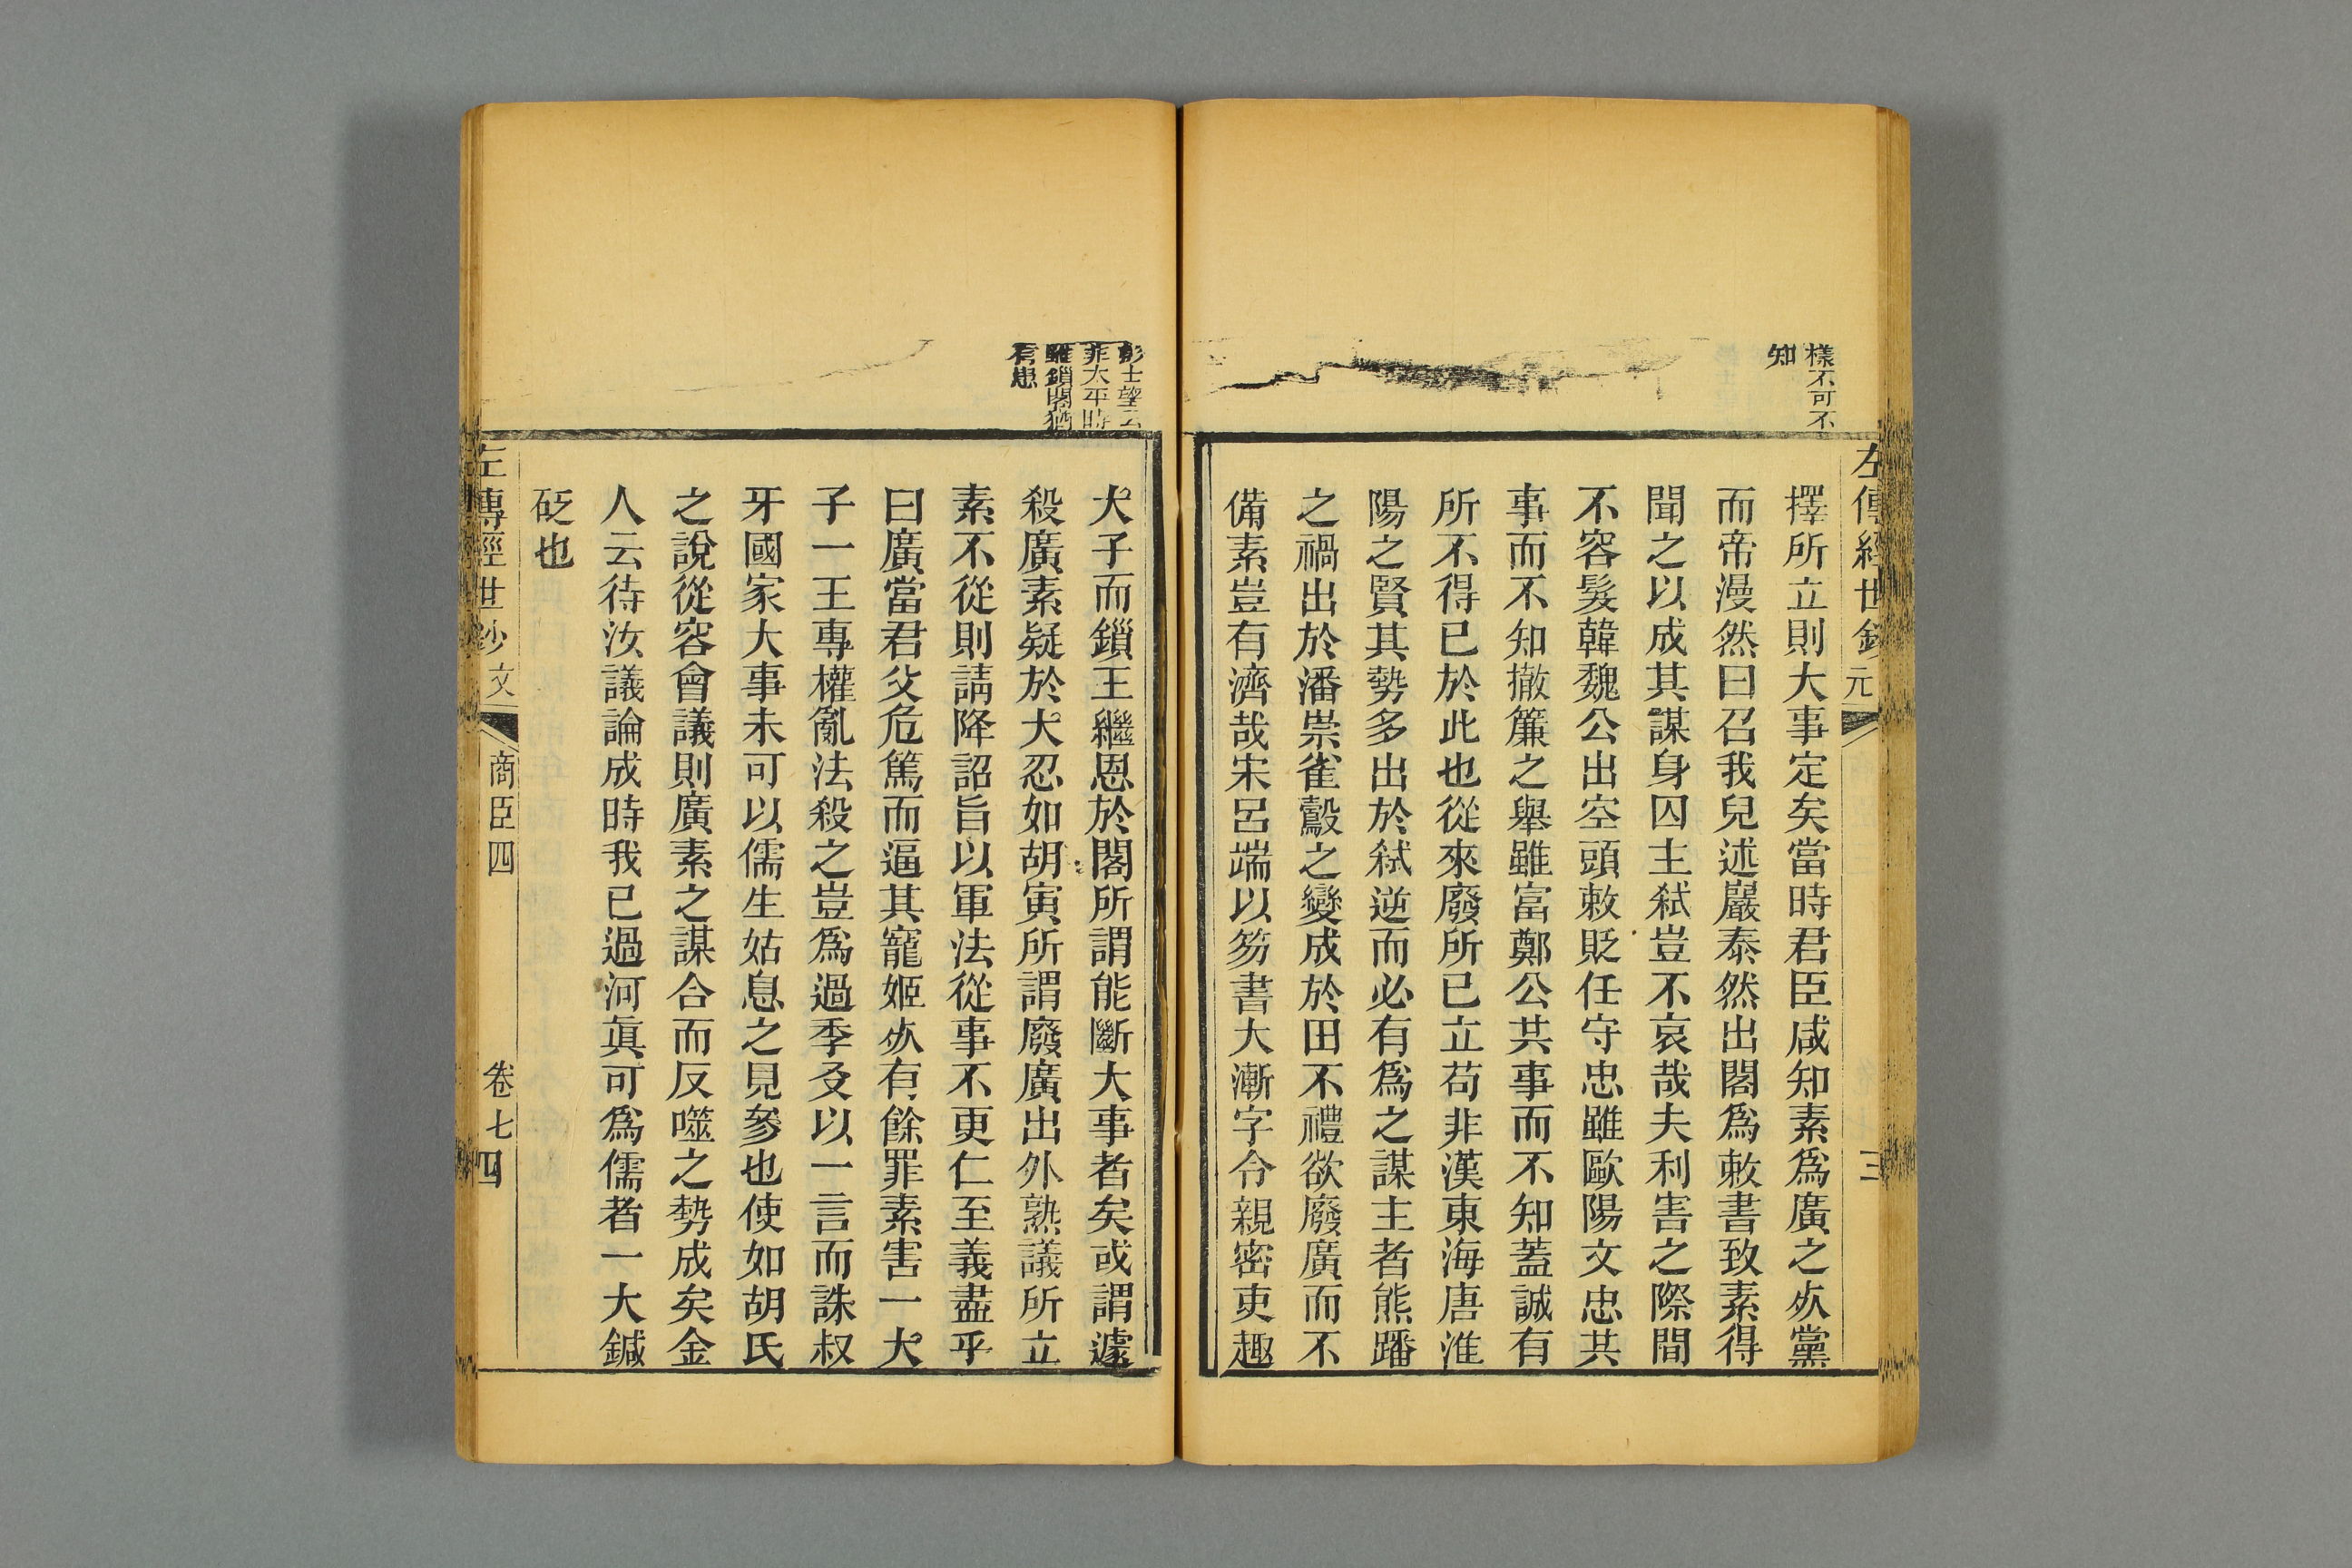 樣不可不
知
左傳經世鈔 元 三
擇所立則大事定矣當時君臣咸知素爲廣之死黨
而帝漫然曰召我兒述巖泰然出閣爲敕書致素得
聞之以成其謀身囚主弑豈不哀哉夫利害之際間
不容髮韓魏公出空頭敕貶任守忠雖歐陽文忠共
事而不知撤簾之舉雖富鄭公共事而不知蓋誠有
所不得已於此也從來廢所已立苟非漢東海唐淮
陽之賢其勢多出於弑逆而必有爲之謀主者熊蹯
之禍出於潘崇雀鷇之變成於田不禮欲廢廣而不
備素豈有濟哉宋呂端以笏書大漸字令親密吏趣
彭士望云
非太平時
雖鎖閣猶
有患
太子而鎖王繼恩於閣所謂能斷大事者矣或謂遽
殺廣素疑於太忍如胡寅所謂廢廣出外熟議所立
素不從則請降詔旨以軍法從事不更仁至義盡乎
曰廣當君父危篤而逼其寵姬死有餘罪素害一太
子一王專權亂法殺之豈爲過季友以一言而誅叔
牙國家大事未可以儒生姑息之見參也使如胡氏
之說從容會議則廣素之謀合而反噬之勢成矣金
人云待汝議論成時我已過河眞可爲儒者一大鍼
砭也
左傳經世鈔 文 商臣四 卷七 四